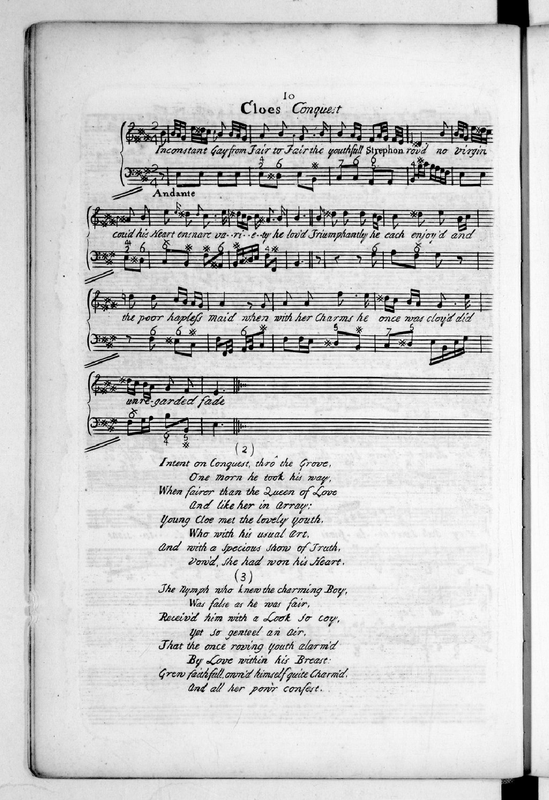 10
Cloes Conquest
Inconstant Gay from Fair to Fair the youthfull Strephon rov'd no virgin
Andante
cou'd his Heart ensnare va--ri--e-ty he lov'd Triumphantly he each enjoy'd and
the poor hapless maid when with her Charms he once was cloy'd did
unre-garded fade
(2)
Intent on Conquest, thro' the Grove,
One morn he took his way,
When fairer than the Queen of Love
And like her in Array:
Young Cloe met the lovely Youth,
Who with his usual Art,
And with a specious show of Truth,
Vow'd, She had won his Heart.
(3)
The Nymph who knew the charming Boy,
Was false as he was fair,
Receiv'd him with a Look so coy,
Yet so genteel an Air,
That the once roving youth alarm'd
By Love within his Breast:
Grew faithfull, own'd himself quite Charm'd,
And all her pow'r confest.